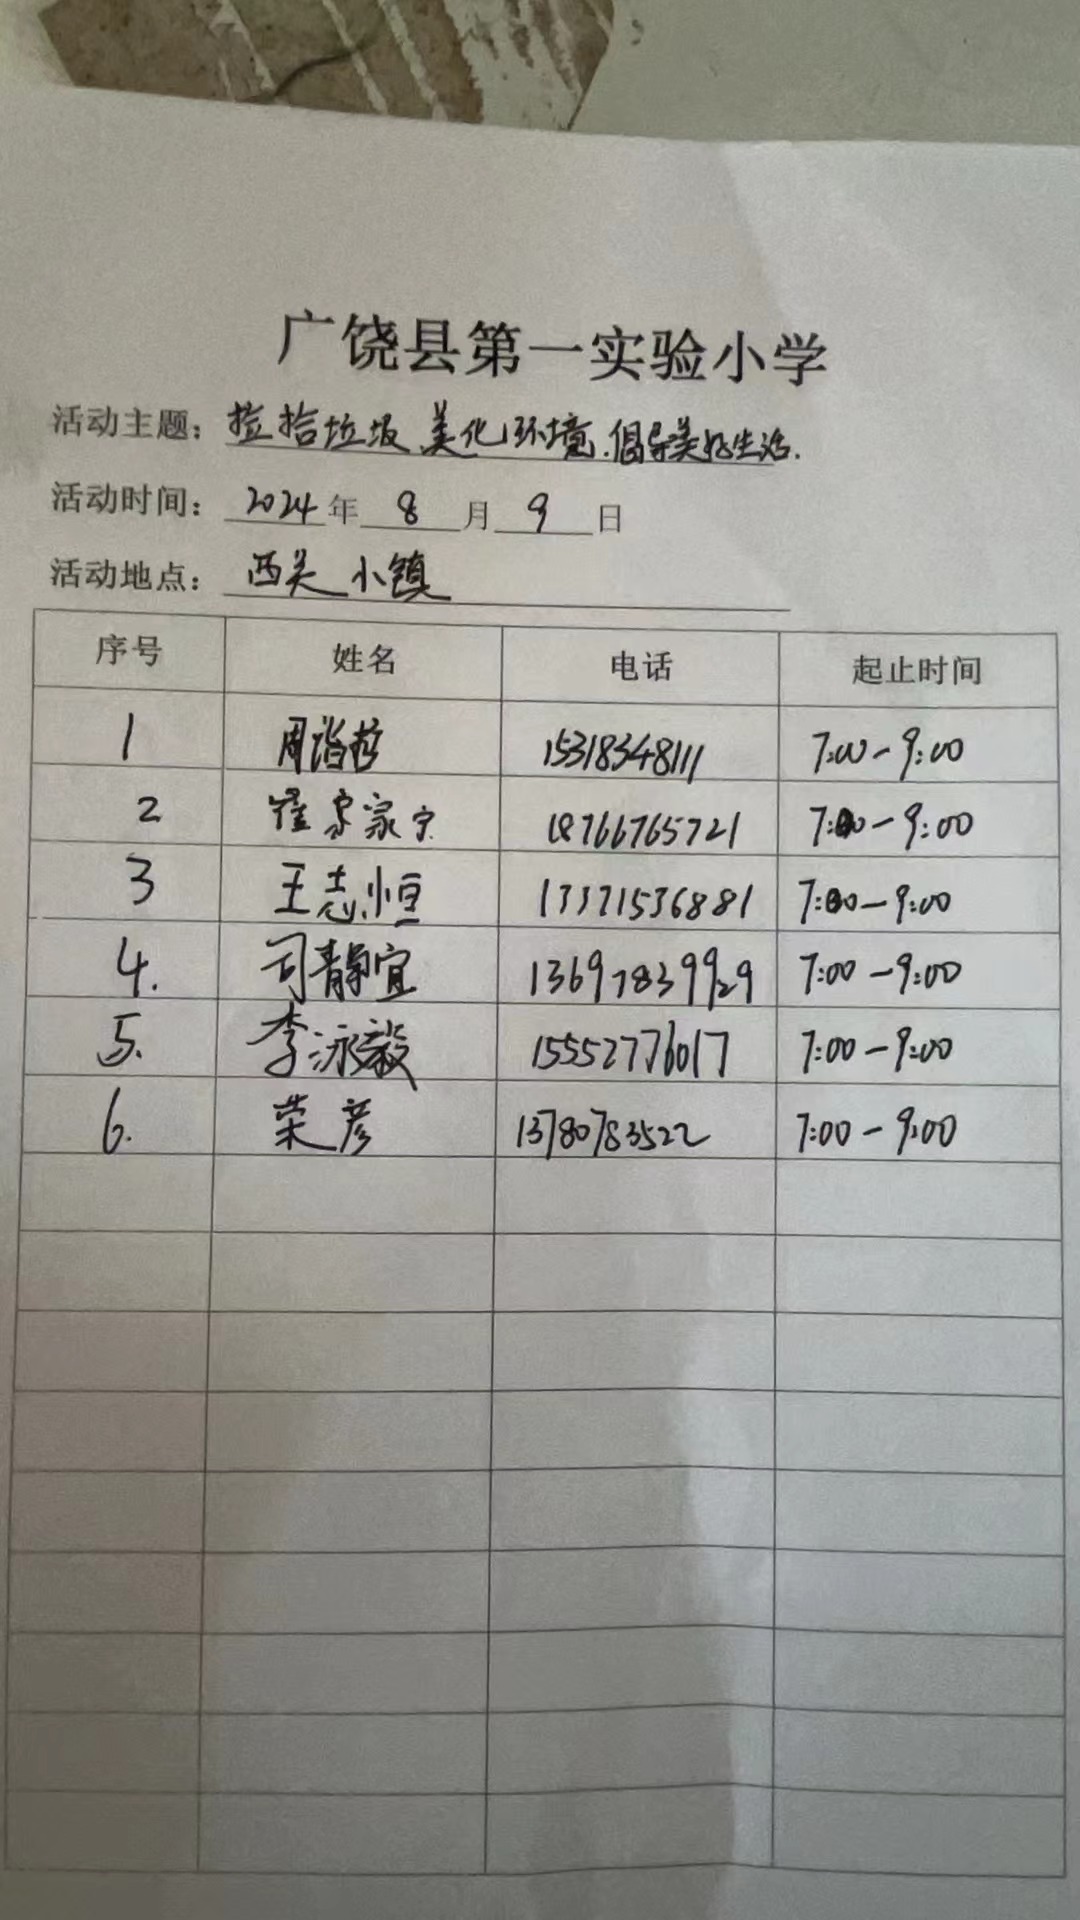 广饶县第一实验小学
活动主题：捡拾垃圾、美化环境、倡导美好生活.
活动时间：2024年8月9日
活动地点：西关小镇
序号 姓名 电话 起止时间
1 周 15318348111 7:00-9:00
2 崔家宗 18766765721 7:00-9:00
3 王志恒 13371536881 7:00-9:00
4. 司静宜 13697839929 7:00-9:00
5. 李泳毅 15552776017 7:00-9:00
6. 荣彦 13780783522 7:00-9:00